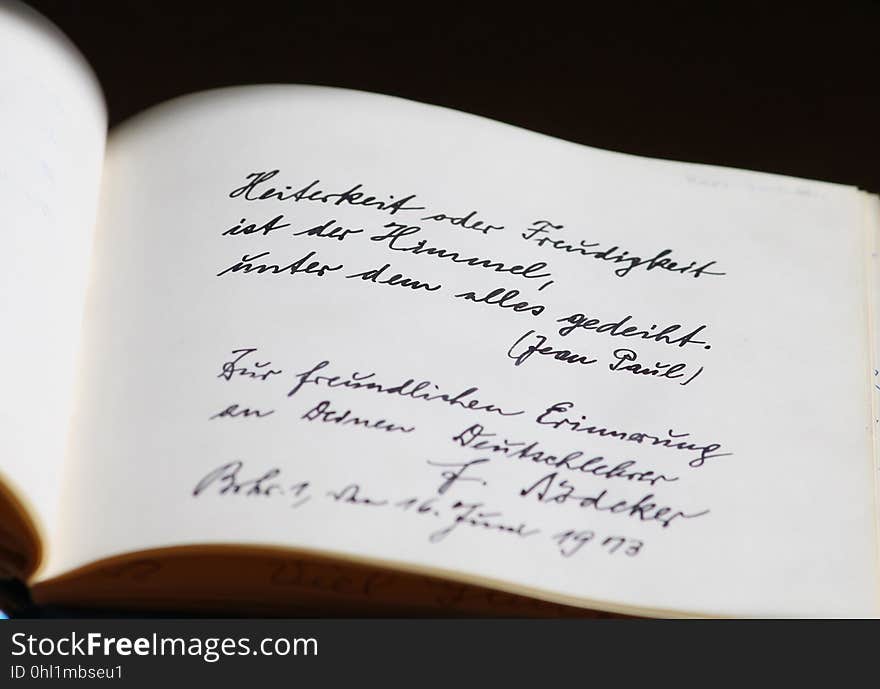 Heiterkeit oder Freudigkeit
ist der Himmel,
unter dem alles gedeiht.
(Jean Paul)
Zur freundlichen Erinnerung
an Deinen Deutschlehrer
F.
den 16. Juni 1973
StockFreeImages.com
ID 0hl1mbseu1